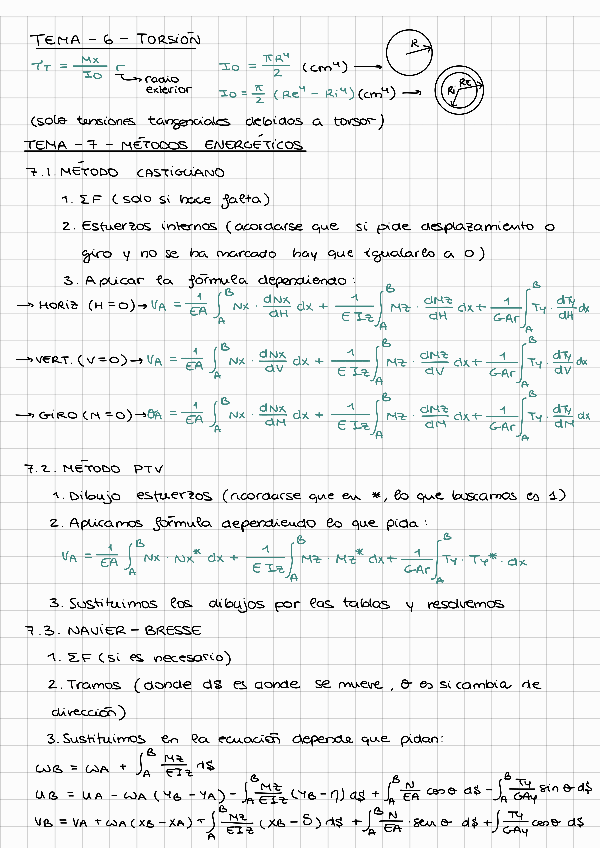 TEMA - 6 - TORSIÓN
τT = Mx / Io r → radio exterior
Io = πR⁴ / 2 (cm⁴) → R
Io = π/2 (Re⁴ - Ri⁴) (cm⁴) → Ri Re
(solo tensiones tangenciales debidos a torsor)
TEMA - 7 - MÉTODOS ENERGÉTICOS
7.1. MÉTODO CASTIGLIANO
1. ΣF (solo si hace falta)
2. Esfuerzos internos (acordarse que si pide desplazamiento o
giro y no se ha marcado hay que igualarlo a 0)
3. Aplicar la fórmula dependiendo:
→ HORIZ (H=0) → VA = 1/EA ∫_A^B Nx · dNx/dH dx + 1/EIz ∫_A^B Mz · dMz/dH dx + 1/GAr ∫_A^B Ty · dTy/dH dx
→ VERT. (V=0) → VA = 1/EA ∫_A^B Nx · dNx/dV dx + 1/EIz ∫_A^B Mz · dMz/dV dx + 1/GAr ∫_A^B Ty · dTy/dV dx
→ GIRO (M=0) → θA = 1/EA ∫_A^B Nx · dNx/dM dx + 1/EIz ∫_A^B Mz · dMz/dM dx + 1/GAr ∫_A^B Ty · dTy/dM dx
7.2. MÉTODO PTV
1. Dibujo esfuerzos (recordarse que en *, lo que buscamos es 1)
2. Aplicamos fórmula dependiendo lo que pida:
VA = 1/EA ∫_A^B Nx · Nx* dx + 1/EIz ∫_A^B Mz · Mz* dx + 1/GAr ∫_A^B Ty · Ty* · dx
3. Sustituimos los dibujos por las tablas y resolvemos
7.3. NAVIER - BRESSE
1. ΣF (si es necesario)
2. Tramos (donde ds es donde se mueve, θ es si cambia de
dirección)
3. Sustituimos en la ecuación depende que pidan:
ωB = ωA + ∫_A^B Mz/EIz ds
uB = uA - ωA (yB - yA) - ∫_A^B Mz/EIz (yB - η) ds + ∫_A^B N/EA cos θ ds - ∫_A^B Ty/GAy sin θ ds
vB = vA + ωA (xB - xA) + ∫_A^B Mz/EIz (xB - δ) ds + ∫_A^B N/EA · sen θ ds + ∫ Ty/GAy cos θ ds